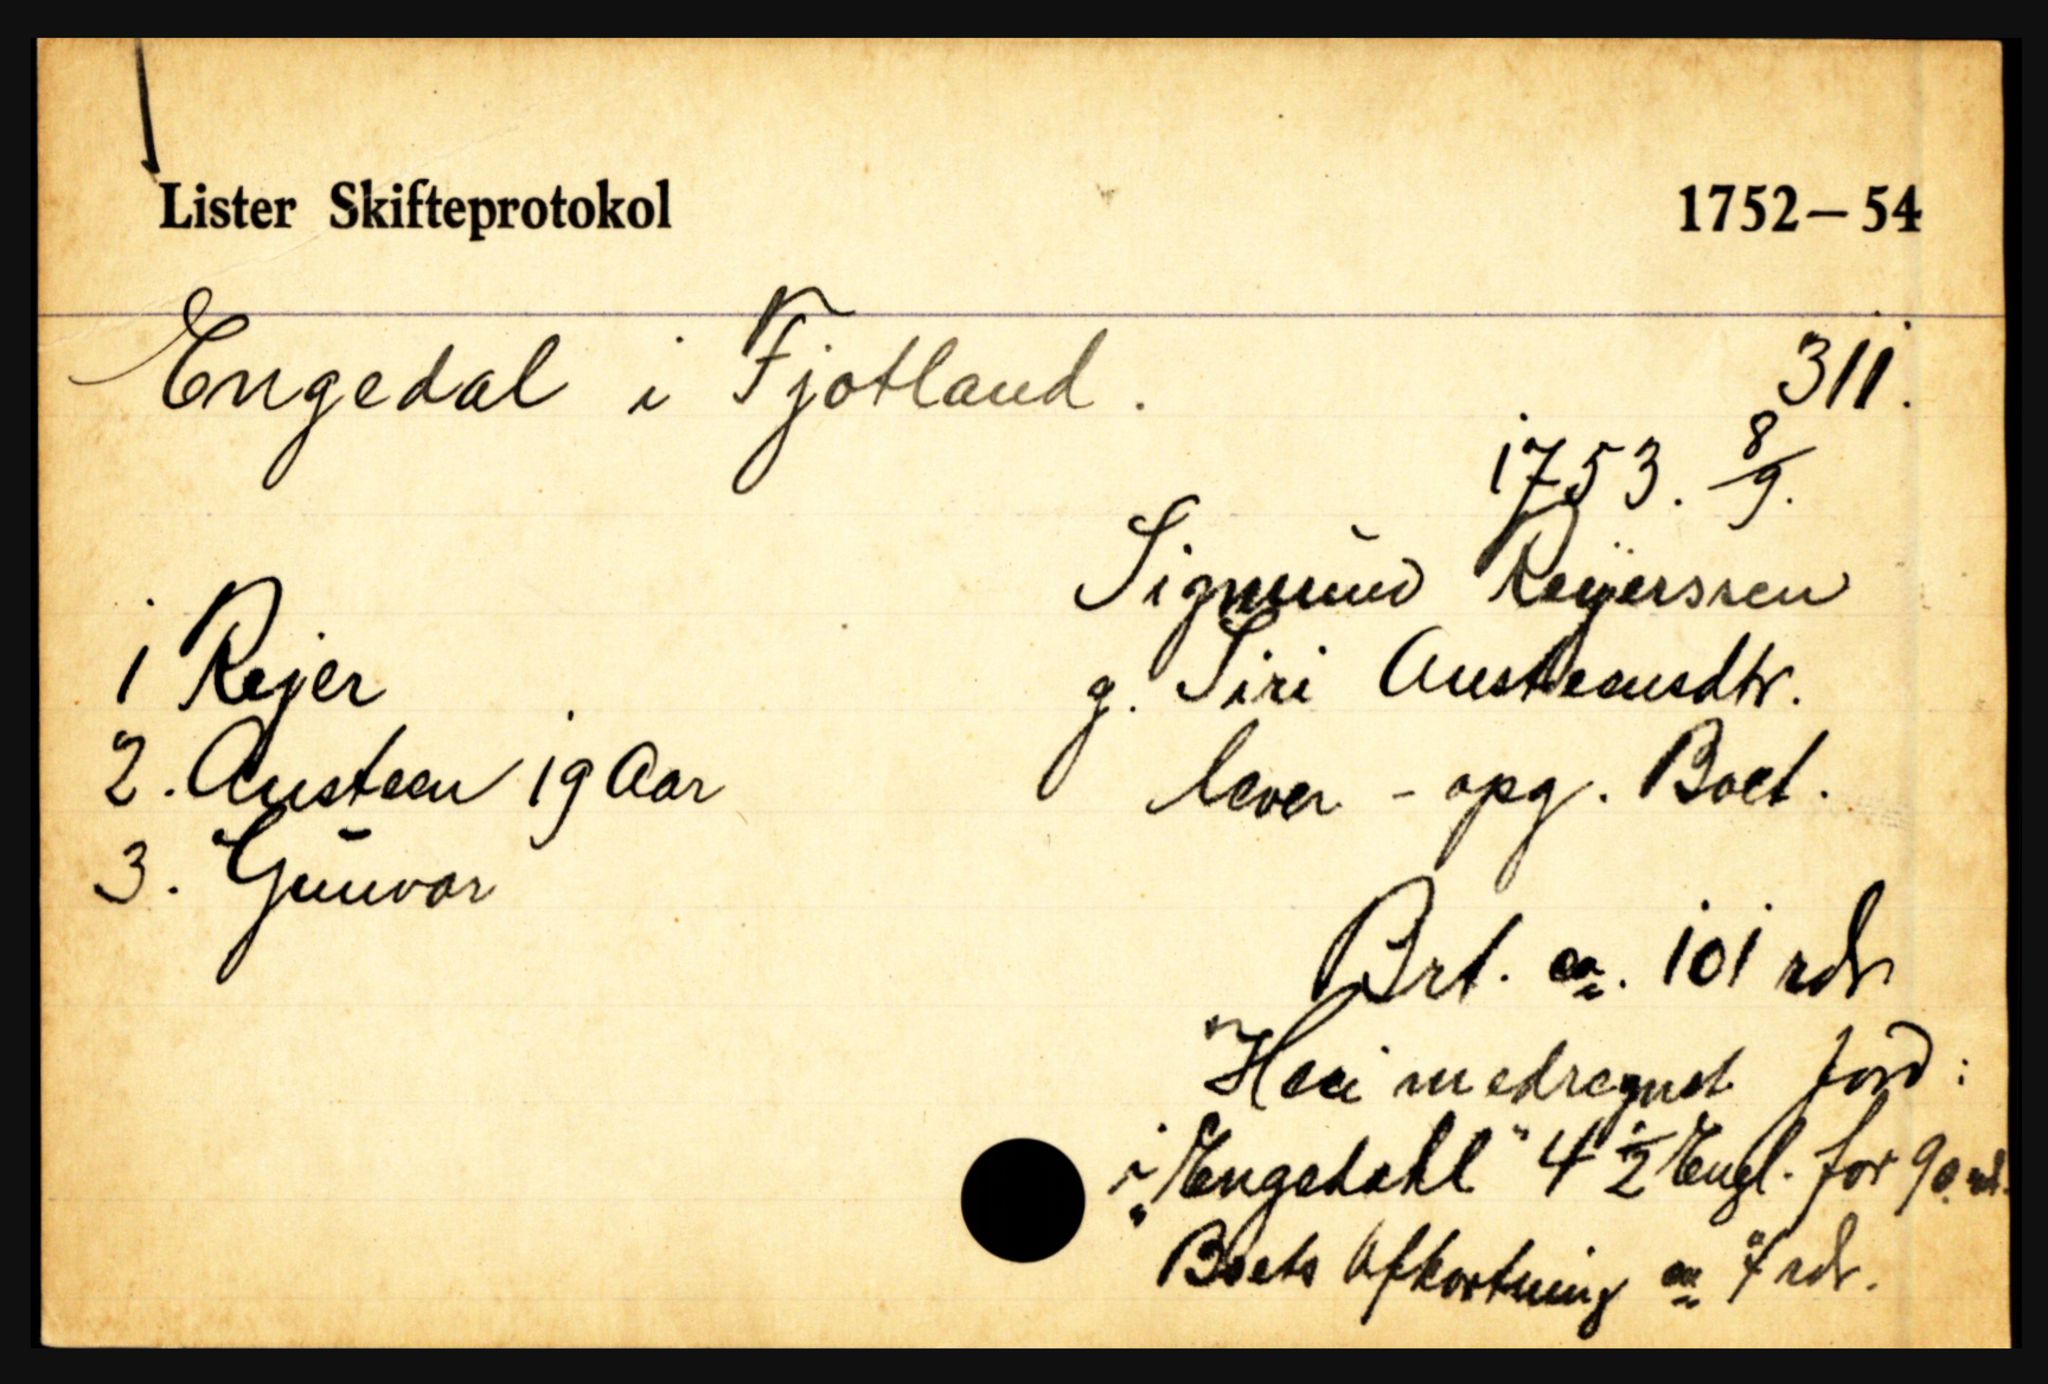 Lister Skifteprotokol 1752—54
Engedal i Fjotland. 311.
1753. 8/9.
Sigmund Reijerssen
1 Rejer
g. Siri Austeensdtr.
2. Austeen 19 Aar
lever - opg. Boet.
3. Gunvor
Brt. ca. 101 rdr
"Heri medregnet Jord:
i Engedahl" 4 1/2 Engl. for 90 rd.
" Boets Afkortning ca 7 rdr.